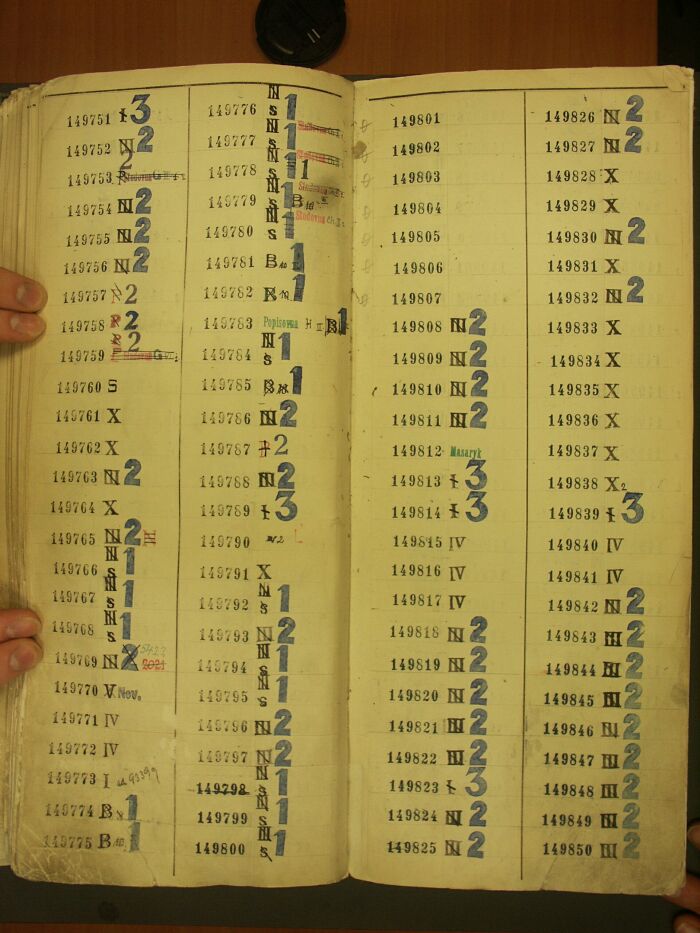 149751 I 3
149752 N 2
149753 2
149754 N 2
149755 N 2
149756 N 2
149757 2
149758 2
149759 2
149760 S
149761 X
149762 X
149763 N 2
149764 X
149765 N 2 III
149766 N S 1
149767 N S 1
149768 N S 1
149769 N 2 2021
149770 V Nov.
149771 IV
149772 IV
149773 I 93399
149774 B 1
149775 B 1
149776 N S 1
149777 N S 1
149778 N S 1 1
149779 S 1 B
149780 N S 1
149781 B 1
149782 1
149783 Popisovna H II B 1
149784 N S 1
149785 B 1
149786 N 2
149787 2
149788 N 2
149789 I 3
149790
149791 X
149792 N S 1
149793 N 2
149794 N S 1
149795 N S 1
149796 N 2
149797 N 2
149798 N S 1
149799 N S 1
149800 N S 1
149801
149802
149803
149804
149805
149806
149807
149808 N 2
149809 N 2
149810 N 2
149811 N 2
149812 Masaryk
149813 I 3
149814 I 3
149815 IV
149816 IV
149817 IV
149818 N 2
149819 N 2
149820 N 2
149821 N 2
149822 N 2
149823 I 3
149824 N 2
149825 N 2
149826 N 2
149827 N 2
149828 X
149829 X
149830 N 2
149831 X
149832 N 2
149833 X
149834 X
149835 X
149836 X
149837 X
149838 X 2
149839 I 3
149840 IV
149841 IV
149842 N 2
149843 N 2
149844 N 2
149845 N 2
149846 N 2
149847 N 2
149848 N 2
149849 N 2
149850 N 2